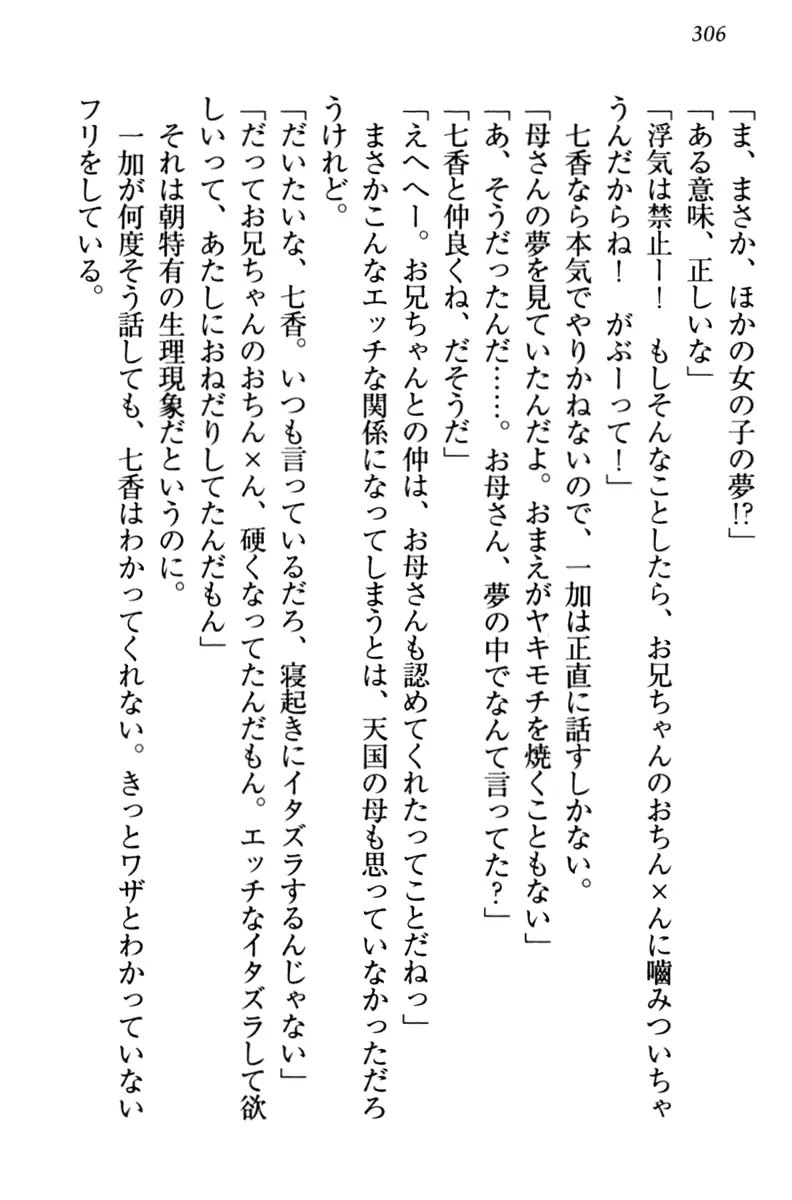 306
「ま、まさか、ほかの女の子の夢!?」
「ある意味、正しいな」
「浮気は禁止ー！　もしそんなことしたら、お兄ちゃんのおちん×んに嚙みついちゃ
うんだからね！　がぶーって！」
　七香なら本気でやりかねないので、一加は正直に話すしかない。
「母さんの夢を見ていたんだよ。おまえがヤキモチを焼くこともない」
「あ、そうだったんだ……。お母さん、夢の中でなんて言ってた？」
「七香と仲良くね、だそうだ」
「えへへー。お兄ちゃんとの仲は、お母さんも認めてくれたってことだねっ」
　まさかこんなエッチな関係になってしまうとは、天国の母も思っていなかっただろ
うけれど。
「だいたいな、七香。いつも言っているだろ、寝起きにイタズラするんじゃない」
「だってお兄ちゃんのおちん×ん、硬くなってたんだもん。エッチなイタズラして欲
しいって、あたしにおねだりしてたんだもん」
　それは朝特有の生理現象だというのに。
　一加が何度そう話しても、七香はわかってくれない。きっとワザとわかっていない
フリをしている。